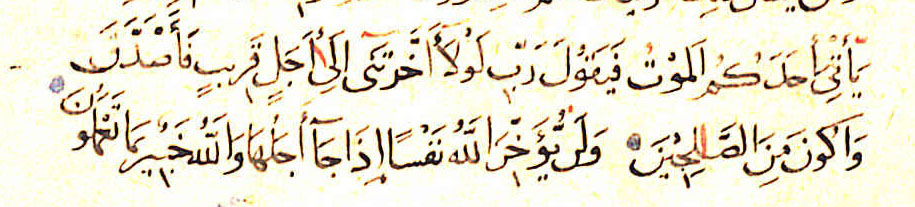 يَأْتِىَ أَحَدَكُمُ اَلمَوْتُ فَيَقُولَ رَبِّ لَوْلَآ أَخَّرْتَنِى إِلَىٰ أَجَلٍ قَرِيبٍ فَأَصَّدَّقَ
وَأَكُونَ مِنَ اَلصَّـٰلِحِينَ وَلَن يُّؤَخِّرَ اَللَّهُ نَفْسًا إِذَا جَآ أَجَلُهَا وَاَللَّهُ خَبِيرٌ بِمَا تَعْمَلُونَ